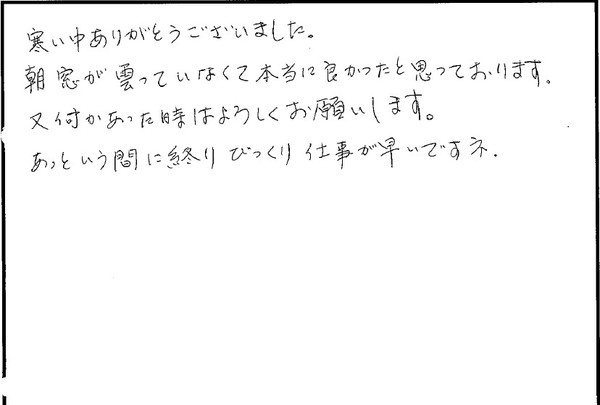 寒い中ありがとうございました。
朝窓が雲っていなくて本当に良かったと思っております。
又何かあった時はよろしくお願いします。
あっという間に終りびっくり仕事が早いですネ.